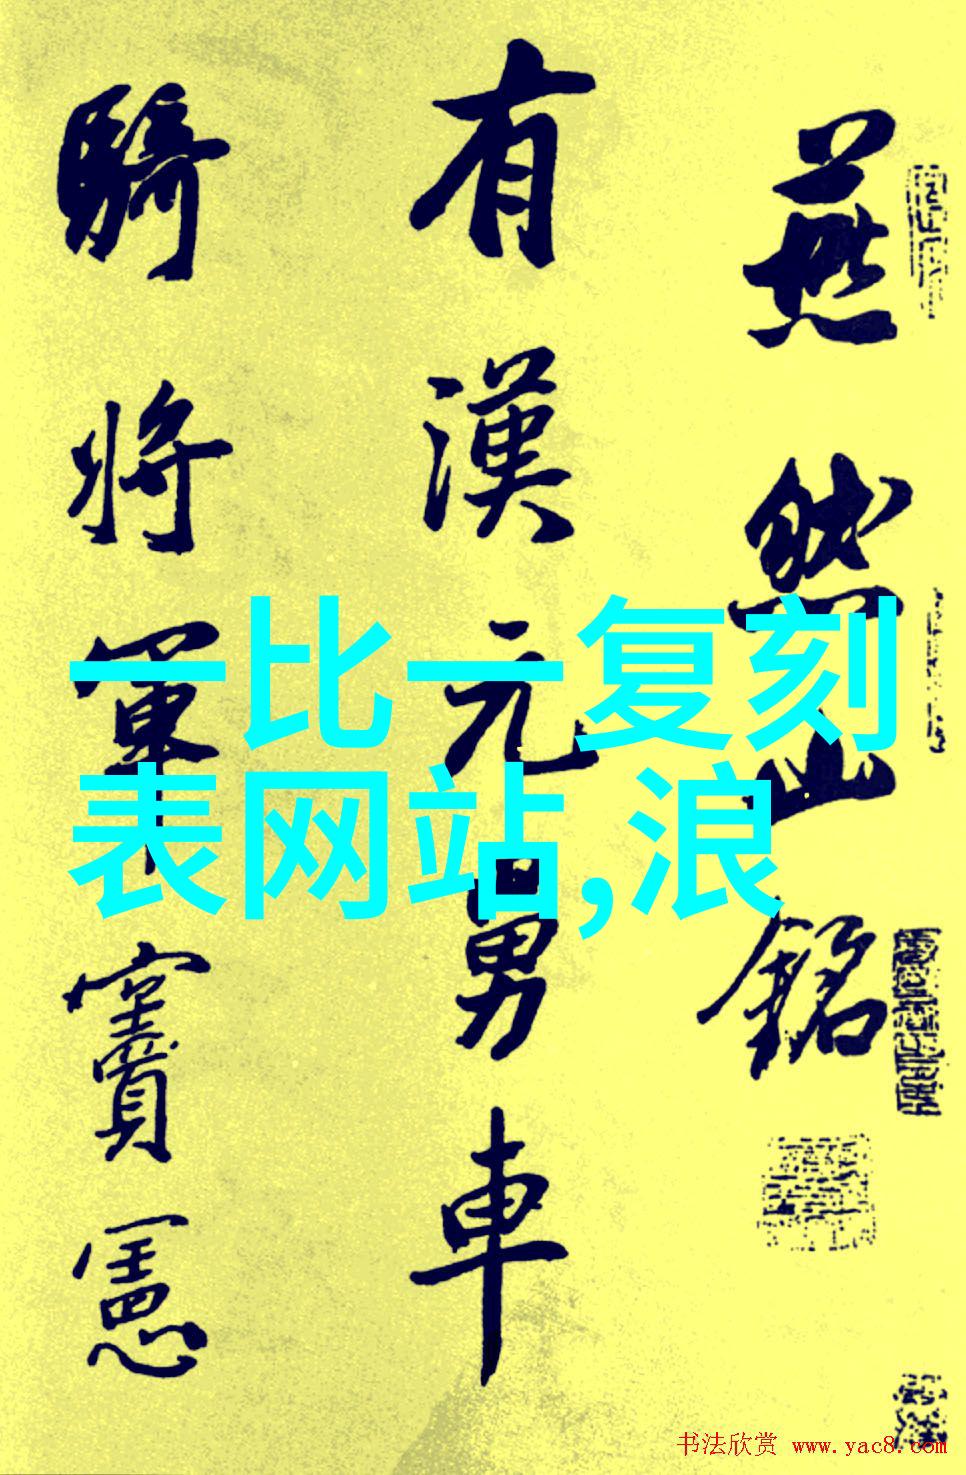 燕然山銘
有漢元舅車
騎将軍竇憲
一比一复刻
表网站,浪
书法欣赏 www.yac8.com